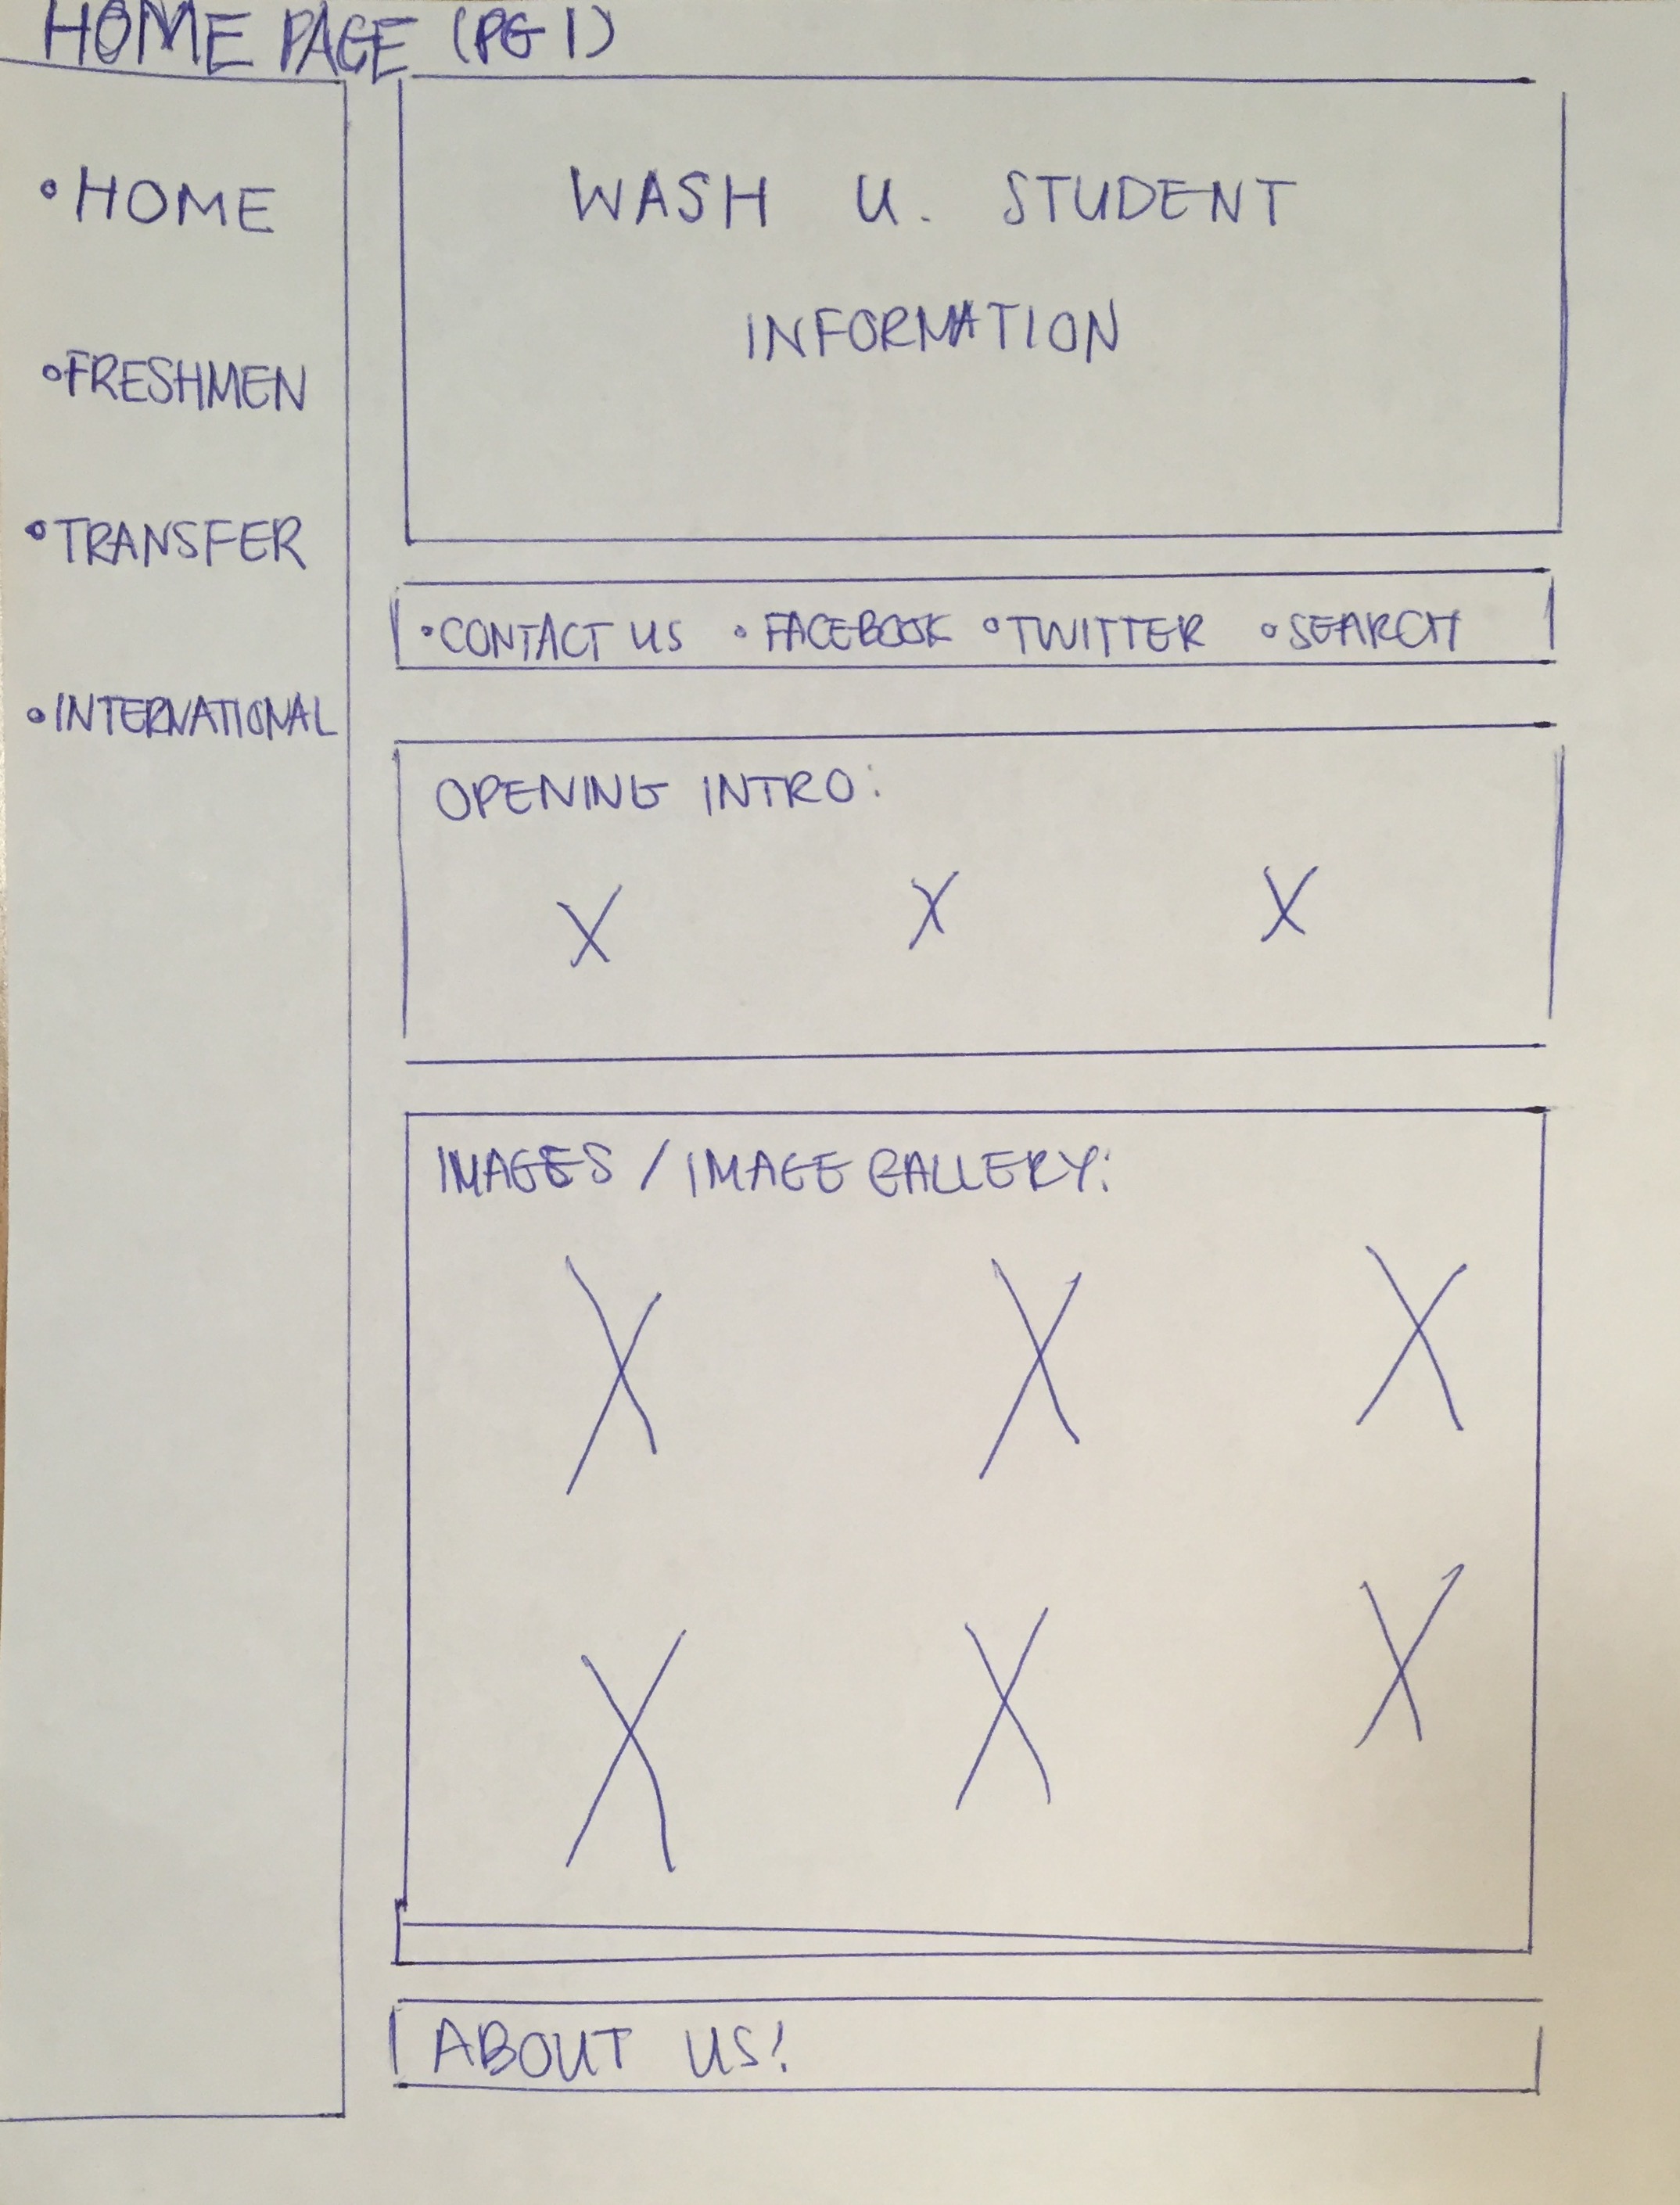 HOME PAGE (PG 1)
• HOME
• FRESHMEN
• TRANSFER
• INTERNATIONAL
WASH U. STUDENT
INFORMATION
• CONTACT US • FACEBOOK • TWITTER • SEARCH
OPENING INTRO:
X X X
IMAGES / IMAGE GALLERY:
X X X
X X X
ABOUT US!